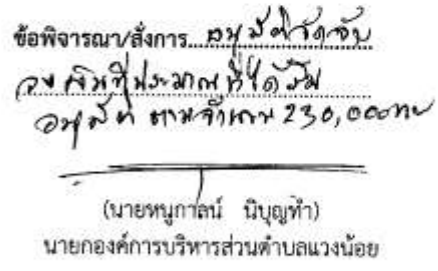 ข้อพิจารณา/สั่งการ อนุมัติจัดจ้าง
วงเงินที่ประมาณที่ได้รับ
อนุมัติ ตามจำนวน 230,000 บาท
(นายหนูกาลน์ นิบุญทำ)
นายกองค์การบริหารส่วนตำบลแวงน้อย